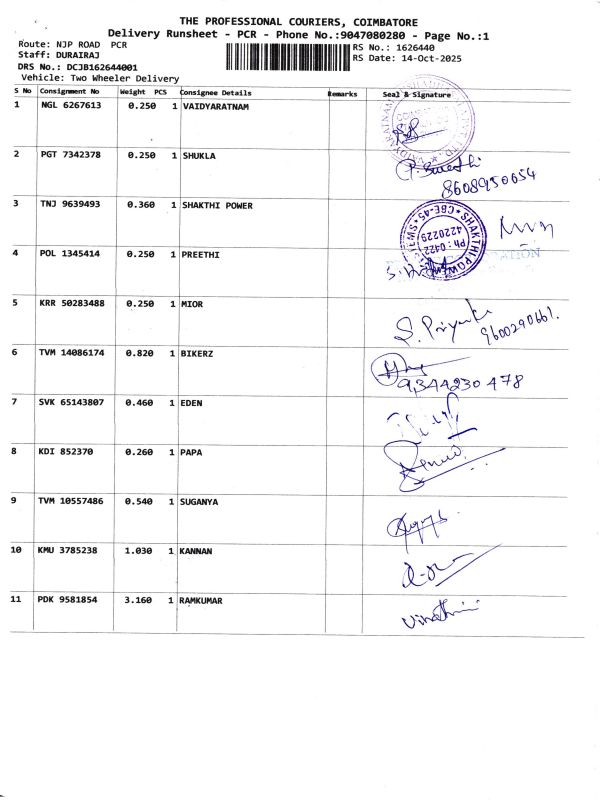 THE PROFESSIONAL COURIERS, COIMBATORE
Delivery Runsheet - PCR - Phone No.:9047080280 - Page No.:1
Route: NJP ROAD PCR
RS No.: 1626440
Staff: DURAIRAJ
RS Date: 14-Oct-2025
DRS No.: DCJB162644001
Vehicle: Two Wheeler Delivery
S No Consignment No Weight PCS Consignee Details Remarks Seal & Signature
1 NGL 6267613 0.250 1 VAIDYARATNAM
2 PGT 7342378 0.250 1 SHUKLA
8608950654
3 TNJ 9639493 0.360 1 SHAKTHI POWER
SHAKTHI POWER SYSTEMS CBE-45
Ph : 0422
4220229
4 POL 1345414 0.250 1 PREETHI
5 KRR 50283488 0.250 1 MIOR
S. Priyanka
9600290661.
6 TVM 14086174 0.820 1 BIKERZ
9344230478
7 SVK 65143807 0.460 1 EDEN
8 KDI 852370 0.260 1 PAPA
9 TVM 10557486 0.540 1 SUGANYA
10 KMU 3785238 1.030 1 KANNAN
11 PDK 9581854 3.160 1 RAMKUMAR